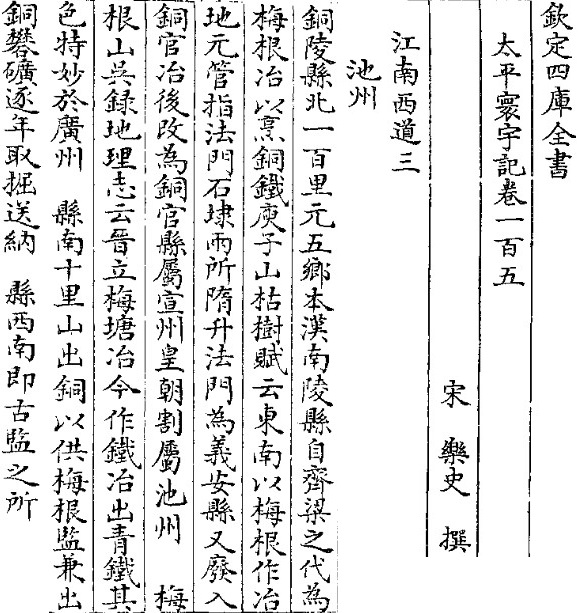 欽定四庫全書
太平寰宇記卷一百五
宋　樂史　撰
江南西道三
池州
銅陵縣北一百里元五鄉本漢南陵縣自齊梁之代為
梅根冶以烹銅鐵庾子山枯樹賦云東南以梅根作冶
地元管指法門石埭兩所隋升法門為義安縣又廢入
銅官冶後改為銅官縣屬宣州皇朝割屬池州　梅
根山吳録地理志云晉立梅塘冶今作鐵冶出青鐵其
色特妙於廣州　縣南十里山出銅以供梅根監兼出
銅礬礦逐年取掘送納　縣西南即古監之所